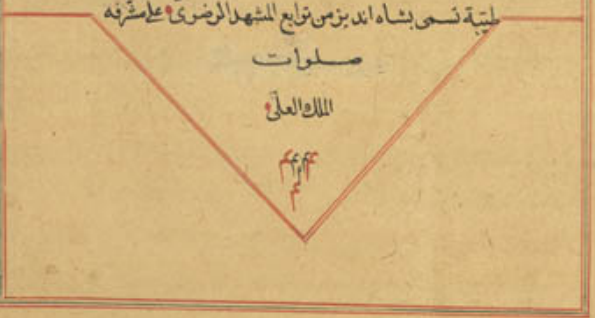 طيّبة تسمى بشاه انديز من توابع المشهد الرضوىّ على مشرّفه
صلوات
الملك العلىّ
م م م
م